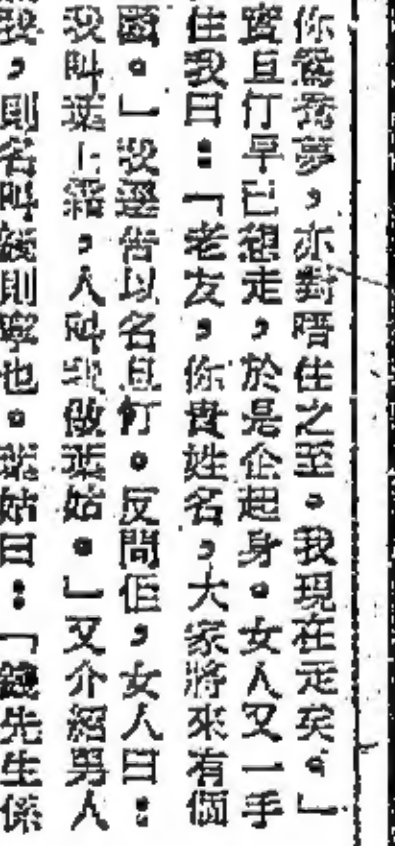 你鴛鴦夢，亦對唔住之至。我現在走矣。」
實且仃早已想走，於是企起身。女人又一手
住我曰：「老友，你貴姓名，大家將來有個
。」我遂告以名且仃。反問佢，女人曰：
我叫葉上霜，人叫我做葉姑。」又介紹男人
，則名叫錢則寧也。葉姑曰：「錢先生係